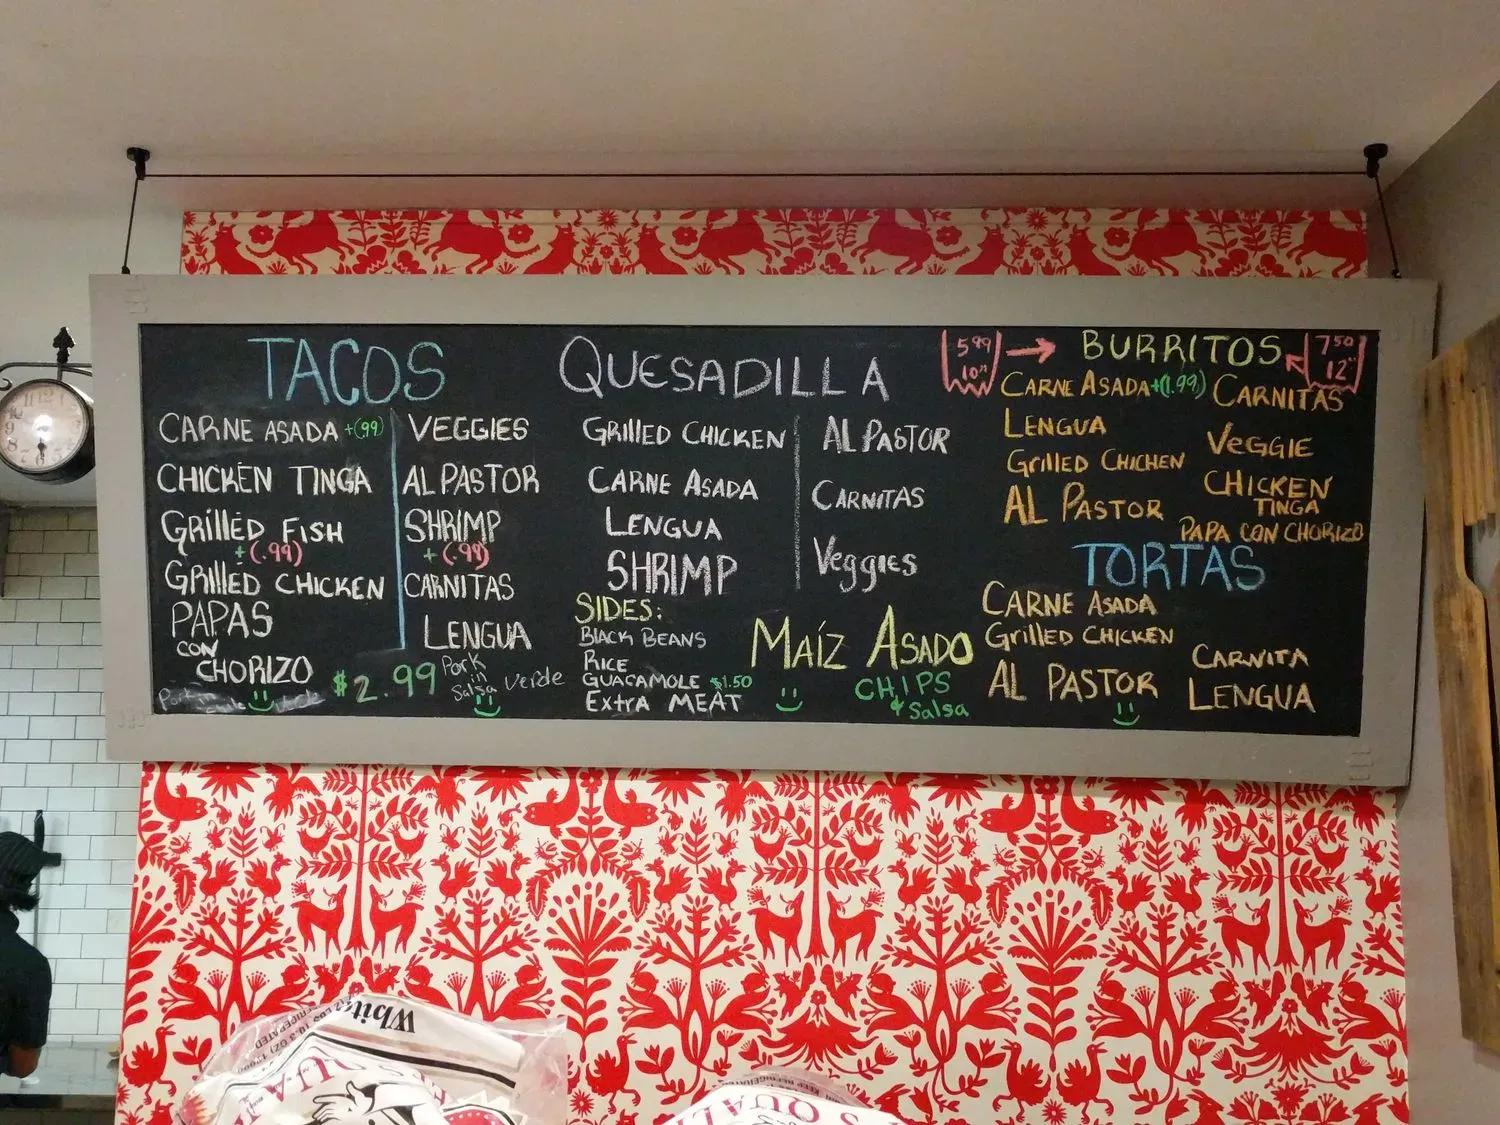 TACOS
CARNE ASADA +(99)
CHICKEN TINGA
GRILLED FISH
+(.99)
GRILLED CHICKEN
PAPAS
CON
CHORIZO
VEGGIES
AL PASTOR
SHRIMP
+(.99)
CARNITAS
LENGUA
$2.99
Pork
in
Salsa Verde
Pork in
QUESADILLA
GRILLED CHICKEN
CARNE ASADA
LENGUA
SHRIMP
AL PASTOR
CARNITAS
Veggies
SIDES:
BLACK BEANS
RICE
GUACAMOLE $1.50
EXTRA MEAT
MAÍZ ASADO
CHIPS
& Salsa
5.99
10"
BURRITOS
7.50
12"
CARNE ASADA +(1.99)
LENGUA
GRILLED CHICHEN
AL PASTOR
CARNITAS
VEGGIE
CHICKEN
TINGA
PAPA CON CHORIZO
TORTAS
CARNE ASADA
GRILLED CHICKEN
AL PASTOR
CARNITA
LENGUA
White